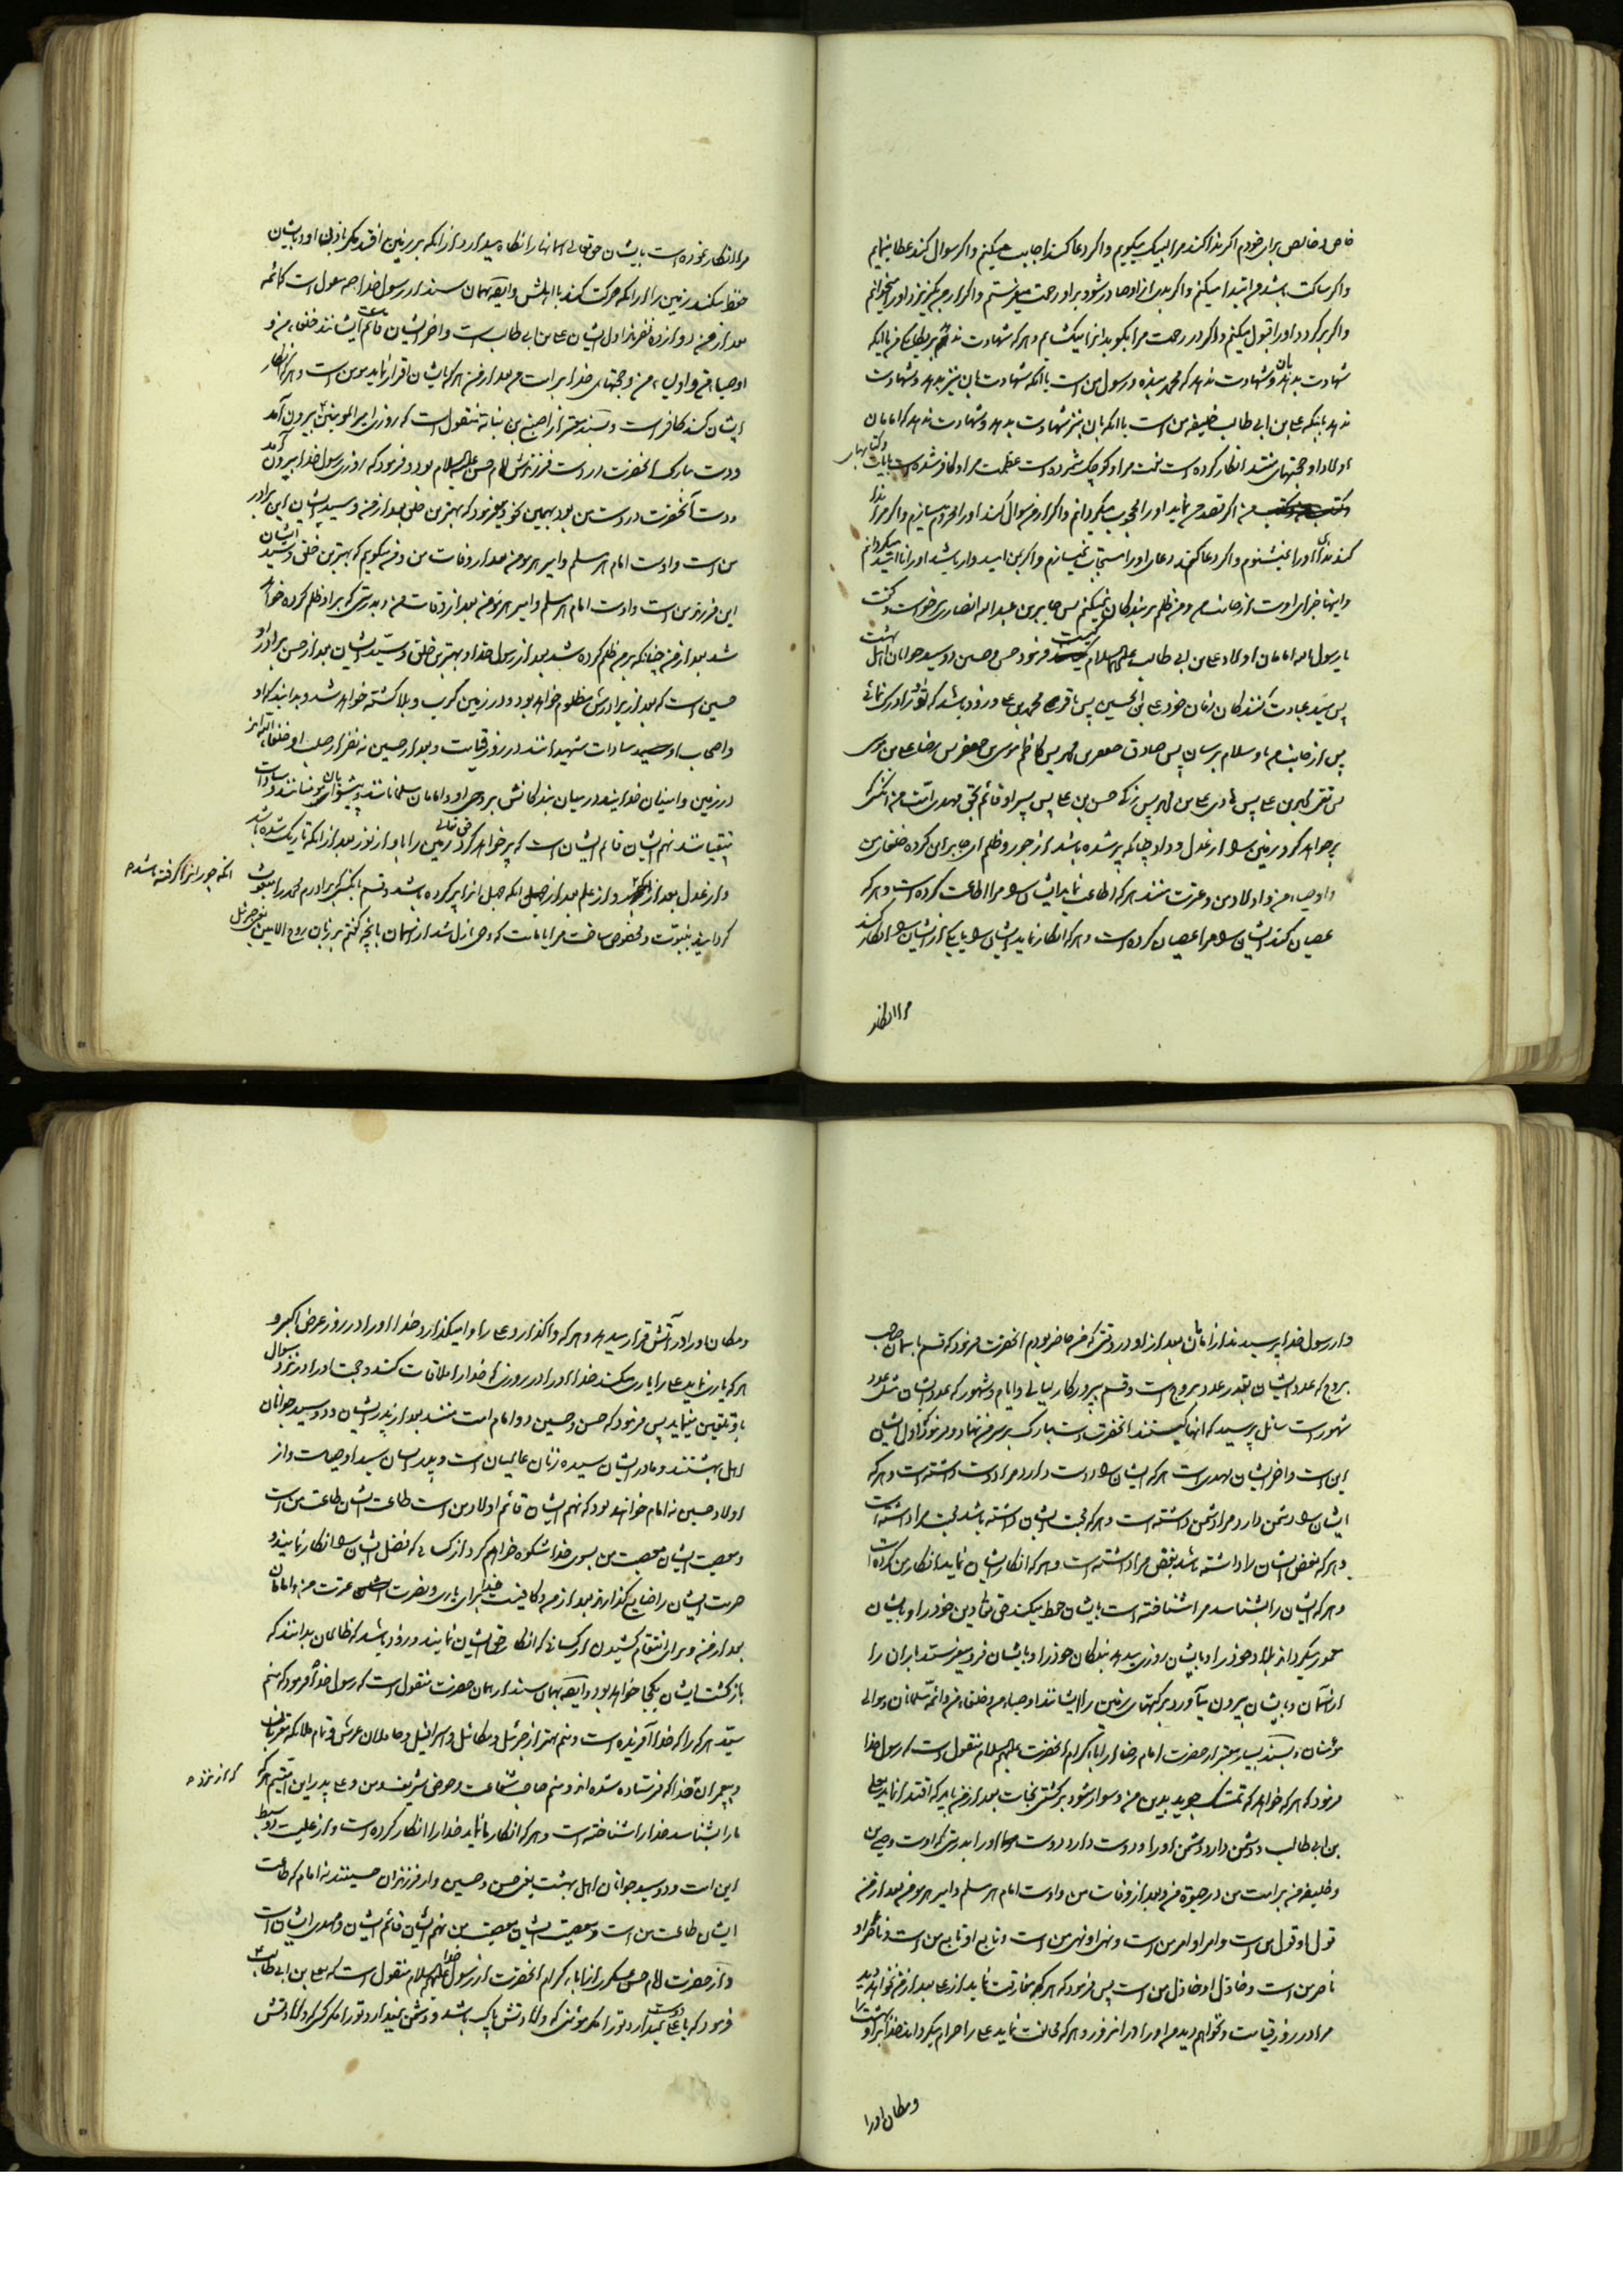 خاص و خالص برای خودم اکر ندا کند مرا لبیک میکویم و اکر دعا کند اجابت میکنم و اکر سوال کند عطا مینمایم
و اکر ساکت باشد من ابتدا میکنم و اکر بدی از او صادر شود بر او رحمت میفرستم و اکر از من بکریزد او را میخوانم
و اکر برکردد او را قبول میکنم و اکر در رحمت مرا بکوبد از برا میکشایم و هر که شهادت ندهد بر یکانکی من یا آنکه
شهادت بدهد بان و شهادت ندهد که محمد بنده و رسول من است یا آنکه شهادت بان نیز بدهد و شهادت
ندهد باینکه علی بن ابی طالب خلیفه من است یا آنکه بان نیز شهادت بدهد و شهادت ندهد که امامان
اولاد او حجتهای منند انکار کرده است نعمت مرا و کوچک شمرده است عظمت مرا و کافر شده است بایات و کتابهای
من اکر قصد من نماید او را محجوب میکردانم و اکر از من سوال کند او را محروم میسازم و اکر مرا ندا
کند ندای او را نمیشنوم و اکر دعا کند دعای او را مستجاب نمیسازم و اکر بمن امیدوار باشد او را ناامید میکردانم
و اینها جزای اوست از جانب من و من ظلم بر بندکان نمیکنم پس جابر بن عبد الله انصاری برخواست و کفت
یا رسول الله امامان اولاد علی بن ابی طالب علیه السلام کیست فرمود حسن و حسین دو سید جوانان اهل بهشت
پس سید عبادت کنندکان زمان خود علی بن الحسین پس باقر محمد بن علی و زود باشد که تو او را درک نمائی
پس از جانب من باو سلام برسان پس صادق جعفر بن محمد پس کاظم موسی بن جعفر پس رضا علی بن موسی
پس تقی محمد بن علی پس هادی علی بن محمد پس زکی حسن بن علی پس پسر او قائم بحق مهدی امت من آنکه
پر خواهد کرد زمین را از عدل و داد چنانکه پر شده باشد از جور و ظلم ای جابر این کروه خلفای من
و اوصیاء من و اولاد من و عترت منند هر که اطاعت نماید ایشان را مرا اطاعت کرده است و هر که
عصیان کند ایشان را مرا عصیان کرده است و هر که انکار نماید ایشان را یا یکی از ایشان را انکار کند
مرا انکار
مرا انکار نموده است بایشان حق تعالی آسمانها را نکاه میدارد از آنکه بر زمین افتد مکر باذن او و بایشان
حفظ میکند زمین را از آنکه حرکت کند با اهلش و ایضا بهمان سند از رسول خدا ص منقول است که ائمه
بعد از من دوازده نفرند اول ایشان علی بن ابی طالب است و آخر ایشان قائم ایشانند خلفاء من و
اوصیاء من و اولیاء من و حجتهای خدا بر امت من بعد از من هر که بایشان اقرار نماید مومن است و هر که انکار
ایشان کند کافر است و بسند معتبر از اصبغ بن نباته منقول است که روزی امیر المومنین بیرون آمد
و دست مبارک آنحضرت در دست فرزندش امام حسن علیه السلام بود و فرمود که روزی رسول خدا بیرون آمد
و دست آنحضرت در دست من بود بهمین نحو و میفرمود که بهترین خلق بعد از من و سید ایشان این برادر
من است و اوست امام هر مسلم و امیر هر مومن بعد از وفات من و من میکویم که بهترین خلق و سید ایشان
این فرزند من است و اوست امام هر مسلم و امیر هر مومن بعد از وفات من و بدرستی که بر او ظلم کرده خواهد
شد بعد از من چنانکه بر من ظلم کرده شد بعد از رسول خدا و بهترین خلق و سید ایشان بعد از حسن برادر او
حسین است که بعد از برادرش مظلوم خواهد بود و در زمین کرب و بلا کشته خواهد شد و بدانید که او
و اصحاب او سادات شهیدانند در روز قیامت و بعد از حسین نه نفر از صلب او خلفاء الله اند
در زمین و امینان خدایند در میان بندکانش بر وحی او و امامان مسلمانانند و پیشوایان مومنانند و سادات
متقیانند نهم ایشان قائم ایشان است که پر خواهد کرد حق تعالی زمین را باو از نور بعد از آنکه تاریک شده باشد
و از عدل بعد از آنکه جور از آن کرفته باشد و از علم بعد از آنکه جهل از آن پر کرده باشد و قسم بآنکسی که برادرم محمد را مبعوث
کردانید بنبوت و مخصوص ساخت مرا بامامت که وحی نازل شد از آسمان بآنچه کفتم بر زبان روح الامین یعنی جبرئیل
و از رسول خدا پرسیدند از امامان بعد از او در وقتی که من حاضر بودم آنحضرت فرمود که قسم باسمان صاحب
بروج که عدد ایشان بقدر عدد بروج است و قسم بپرورکار لیالی و ایام و شهور که عدد ایشان مثل عدد
شهور است سائل پرسید که آنها کیستند آنحضرت دست مبارک بر سر من نهاد و فرمود که اول ایشان
این است و آخر ایشان مهدی است هر که ایشان را دوست دارد مرا دوست داشته است و هر که
ایشان را دشمن دارد مرا دشمن داشته است و هر که محبت ایشان داشته باشد محبت مرا داشته است
و هر که بغض ایشان را داشته باشد بغض مرا داشته است و هر که انکار ایشان نماید انکار من کرده است
و هر که ایشان را بشناسد مرا شناخته است بایشان حفظ میکند حق تعالی دین خود را و بایشان
معمور میکرداند بلاد خود را و بایشان روزی میدهد بندکان خود را و بایشان فرو میفرستد باران را
از آسمان و بایشان بیرون میآورد برکتهای زمین را ایشانند اوصیاء من و خلفاء من و ائمه مسلمانان و موالی
مومنان و بسند بسیار معتبر از حضرت امام رضا از آباء کرام آنحضرت علیهم السلام منقول است که رسول خدا
فرمود که هر که خواهد که تمسک جوید بدین من و سوار شود بر کشتی نجات بعد از من باید که اقتدا نماید بعلی
بن ابی طالب و دشمن دارد دشمن او را و دوست دارد دوست او را بدرستی که اوست وصی من
و خلیفه من بر امت من در حیوة من و بعد از وفات من و اوست امام هر مسلم و امیر هر مومن بعد از من
قول او قول من است و امر او امر من است و نهی او نهی من است و تابع او تابع من است و ناصر او
ناصر من است و خاذل او خاذل من است پس فرمود که هر که مفارقت نماید از علی بعد از من نخواهد دید
مرا در روز قیامت و نخواهم دید من او را در آنروز و هر که مخالفت نماید علی را حرام میکرداند خدا بر او بهشت را
و مکان او را
و مکان او را در آتش قرار میدهد و هر که واکذارد علی را وامیکذارد خدا او را در روز عرض اکبر و
هر که یاری نماید علی را یاری میکند خدا او را در روزی که خدا را ملاقات کند و حجت او را در نزد سوال
باو تلقین مینماید پس فرمود که حسن و حسین دو امام امت منند بعد از پدر ایشان و دو سید جوانان
اهل بهشتند و مادر ایشان سیده زنان عالمیان است و پدر ایشان سید اوصیاست و از
اولاد حسین نه امام خواهند بود که نهم ایشان قائم اولاد من است طاعت ایشان طاعت من است
و معصیت ایشان معصیت من بسوی خدا شکوه خواهم کرد از کسانی که فضل ایشان را انکار نمایند و
حرمت ایشان را ضایع کذارند بعد از من و کافیست خدا برای یاری و نصرت عترت من و امامان
بعد از من و برای انتقام کشیدن از کسانی که انکار حق ایشان نمایند و زود باشد که ظالمان بدانند که
بازکشت ایشان بکجا خواهد بود و ایضا بهمان سند از همان حضرت منقول است که رسول خدا فرمود که منم
سید هر که را که خدا آفریده است و منم بهتر از جبرئیل و میکائیل و اسرافیل و حاملان عرش و تمام ملائکه مقربان
و پیغمبران خدا که فرستاده شده اند و منم صاحب شفاعت و حوض شریف و من و علی پدر این امتیم هر که
ما را بشناسد خدا را شناخته است و هر که انکار ما نماید خدا را انکار کرده است و از علیست دو سبط
این امت و دو سید جوانان اهل بهشت یعنی حسن و حسین و از فرزندان حسینند نه امام که طاعت
ایشان طاعت من است و معصیت ایشان معصیت من نهم ایشان قائم ایشان و مهدی ایشان است
و از حضرت امام حسن عسکری از آباء کرام آنحضرت از رسول خدا علیهم السلام منقول است که بعلی بن ابی طالب
فرمود که یا علی دوست نمیدارد تو را مکر مومنی که ولادتش پاک باشد و دشمن نمیدارد تو را مکر کسی که ولادتش